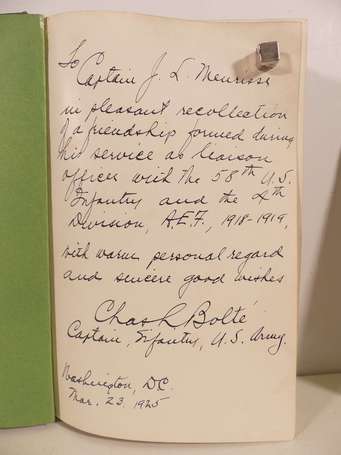 To
Captain J. L. Meurisse
in pleasant recollection
of a friendship formed during
his service as liaison
officer with the 58th U.S.
Infantry and the 4th
Division, A.E.F., 1918-1919,
with warm personal regard
and sincere good wishes
Chas L Bolté
Captain, Infantry, U.S. Army.
Washington, DC.
Mar. 23, 1925